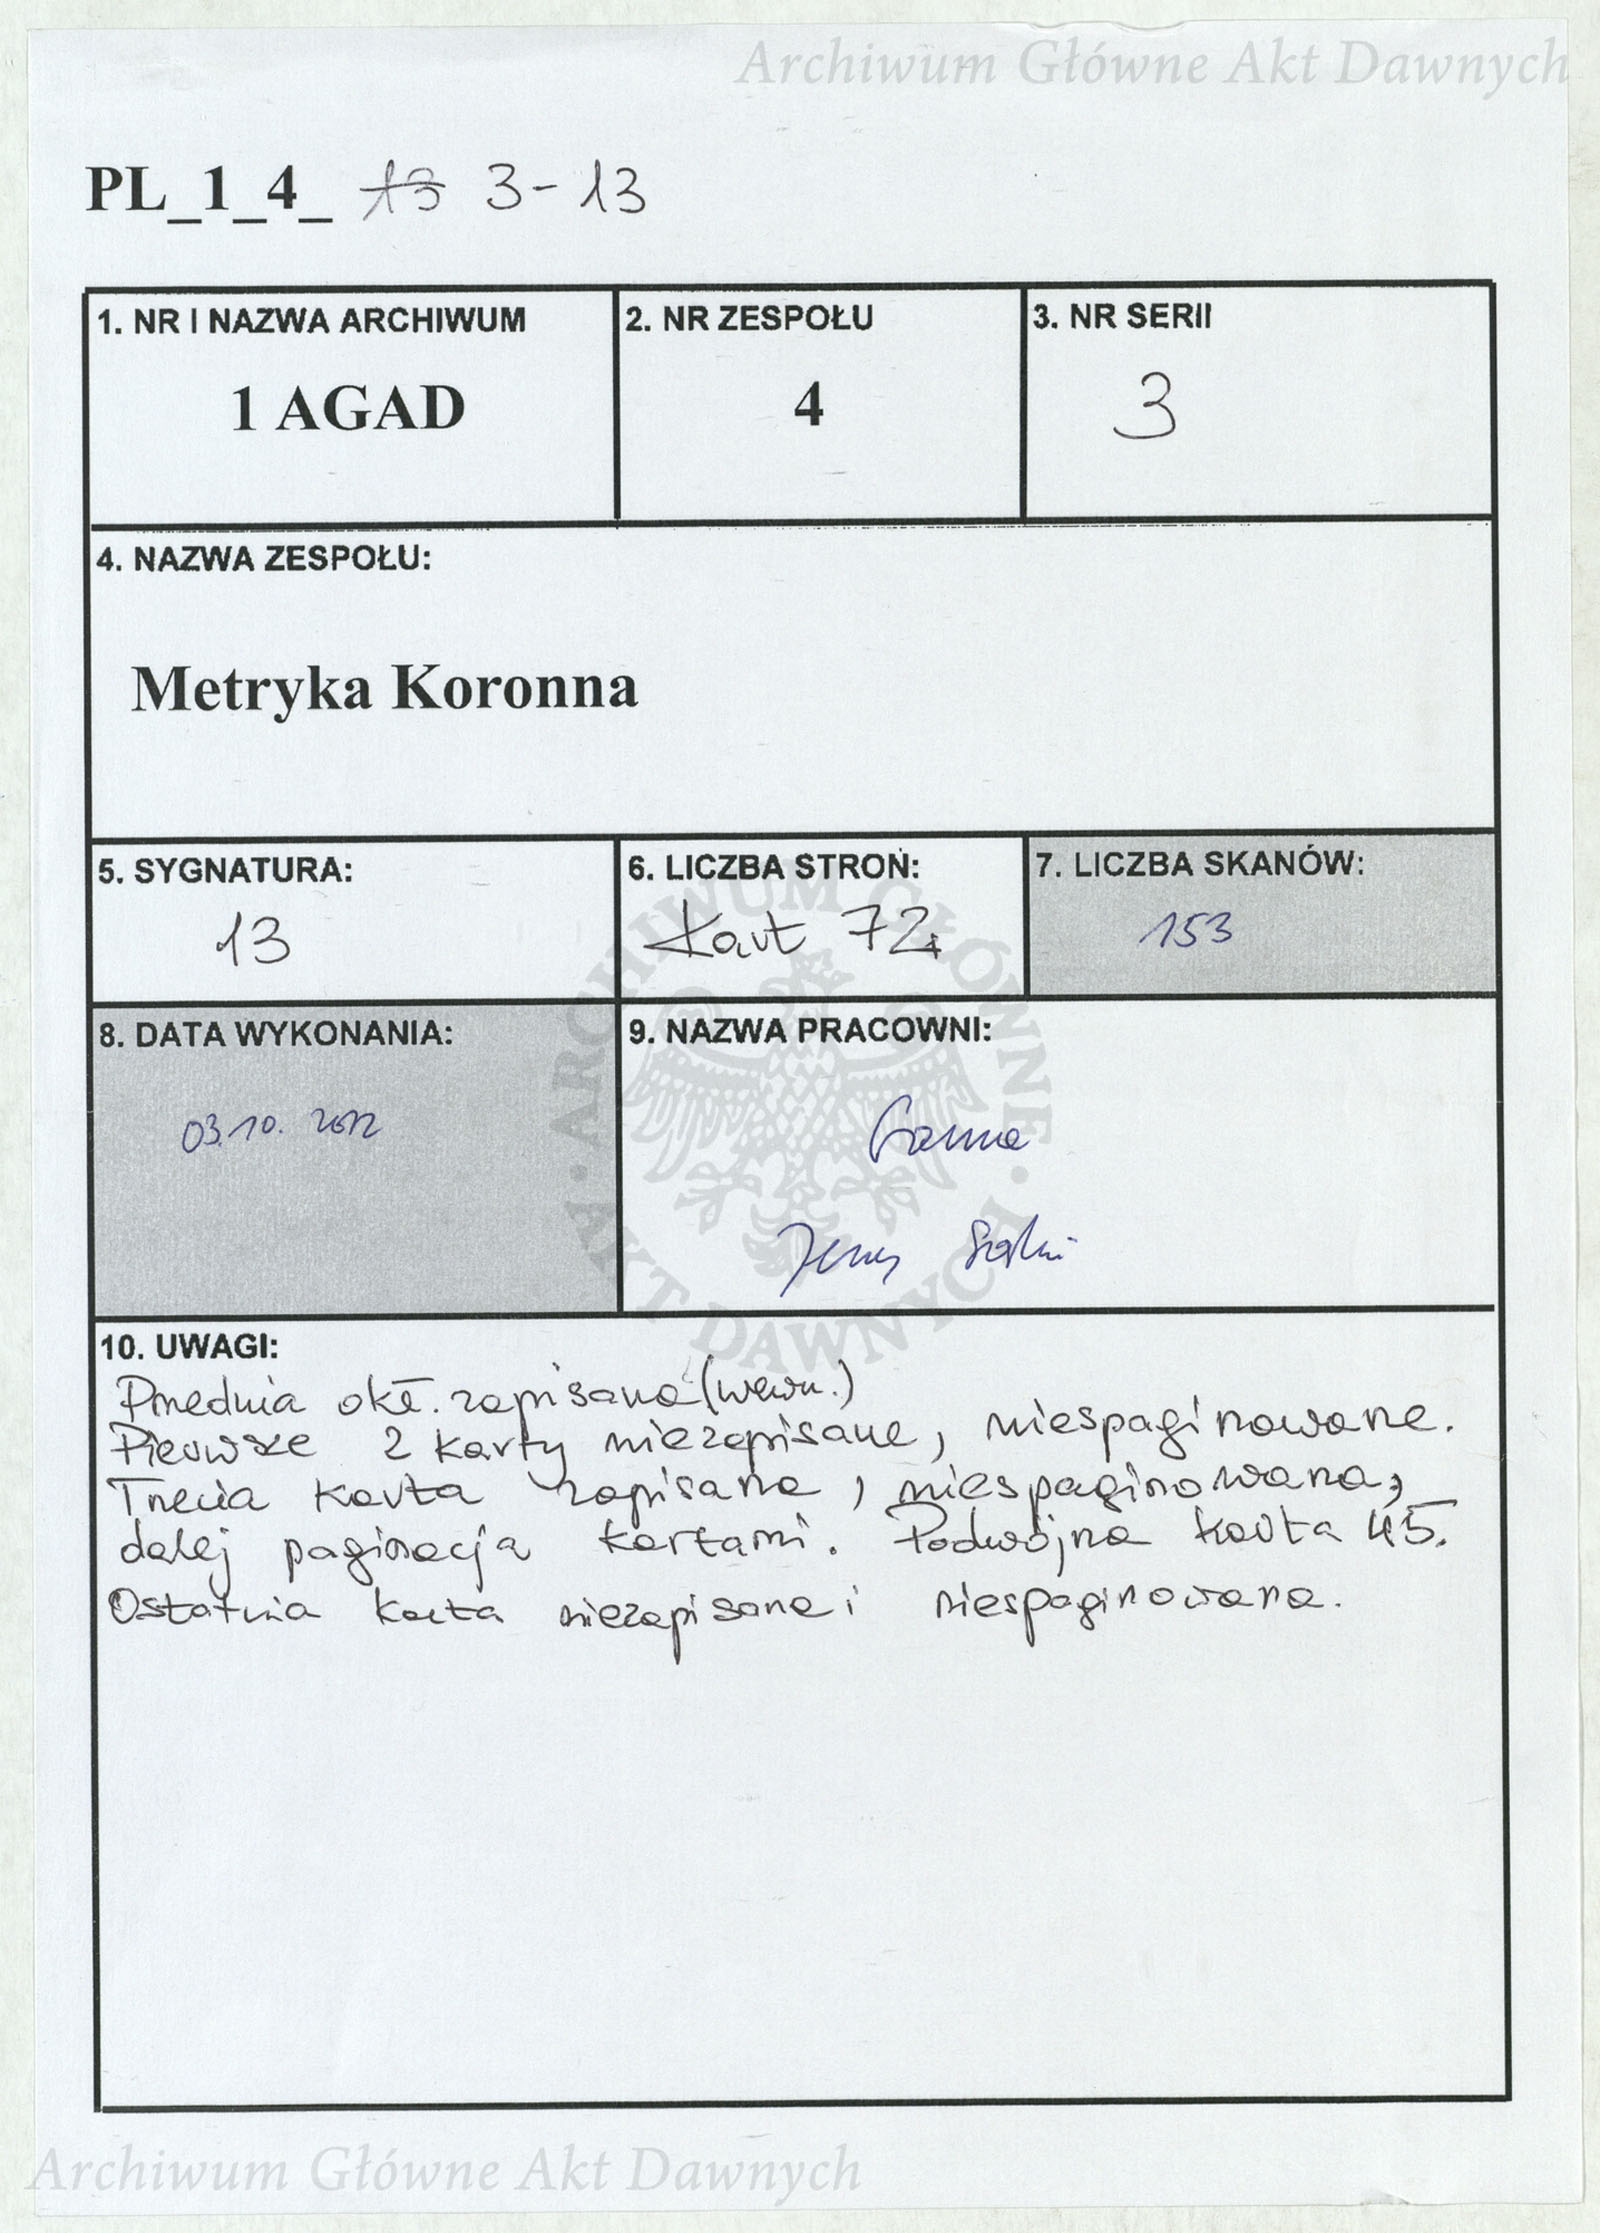 Archiwum Główne Akt Dawnych
PL_1_4_ 13 3-13
1. NR I NAZWA ARCHIWUM
1 AGAD
2. NR ZESPOŁU
4
3. NR SERII
3
4. NAZWA ZESPOŁU:
Metryka Koronna
5. SYGNATURA:
13
6. LICZBA STRON:
Kart 72
7. LICZBA SKANÓW:
153
8. DATA WYKONANIA:
03.10. 2012
9. NAZWA PRACOWNI:
ARCHIWUM GŁÓWNE
AKT DAWNYCH
10. UWAGI:
Przednia okł. zapisana (wewn.)
Pierwsze 2 karty niezapisane, niespaginowane.
Trzecia karta zapisana, niespaginowana,
dalej paginacja kartami. Podwójna karta 45.
Ostatnia karta niezapisana i niespaginowana.
Archiwum Główne Akt Dawnych